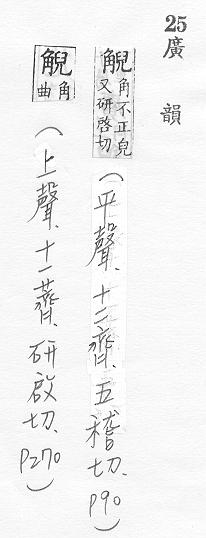 25 廣韻
觬 角不正皃又研啓切 (平聲、十二齊、五稽切、P90)
觬 角曲 (上聲、十一薺、研啟切、P270)